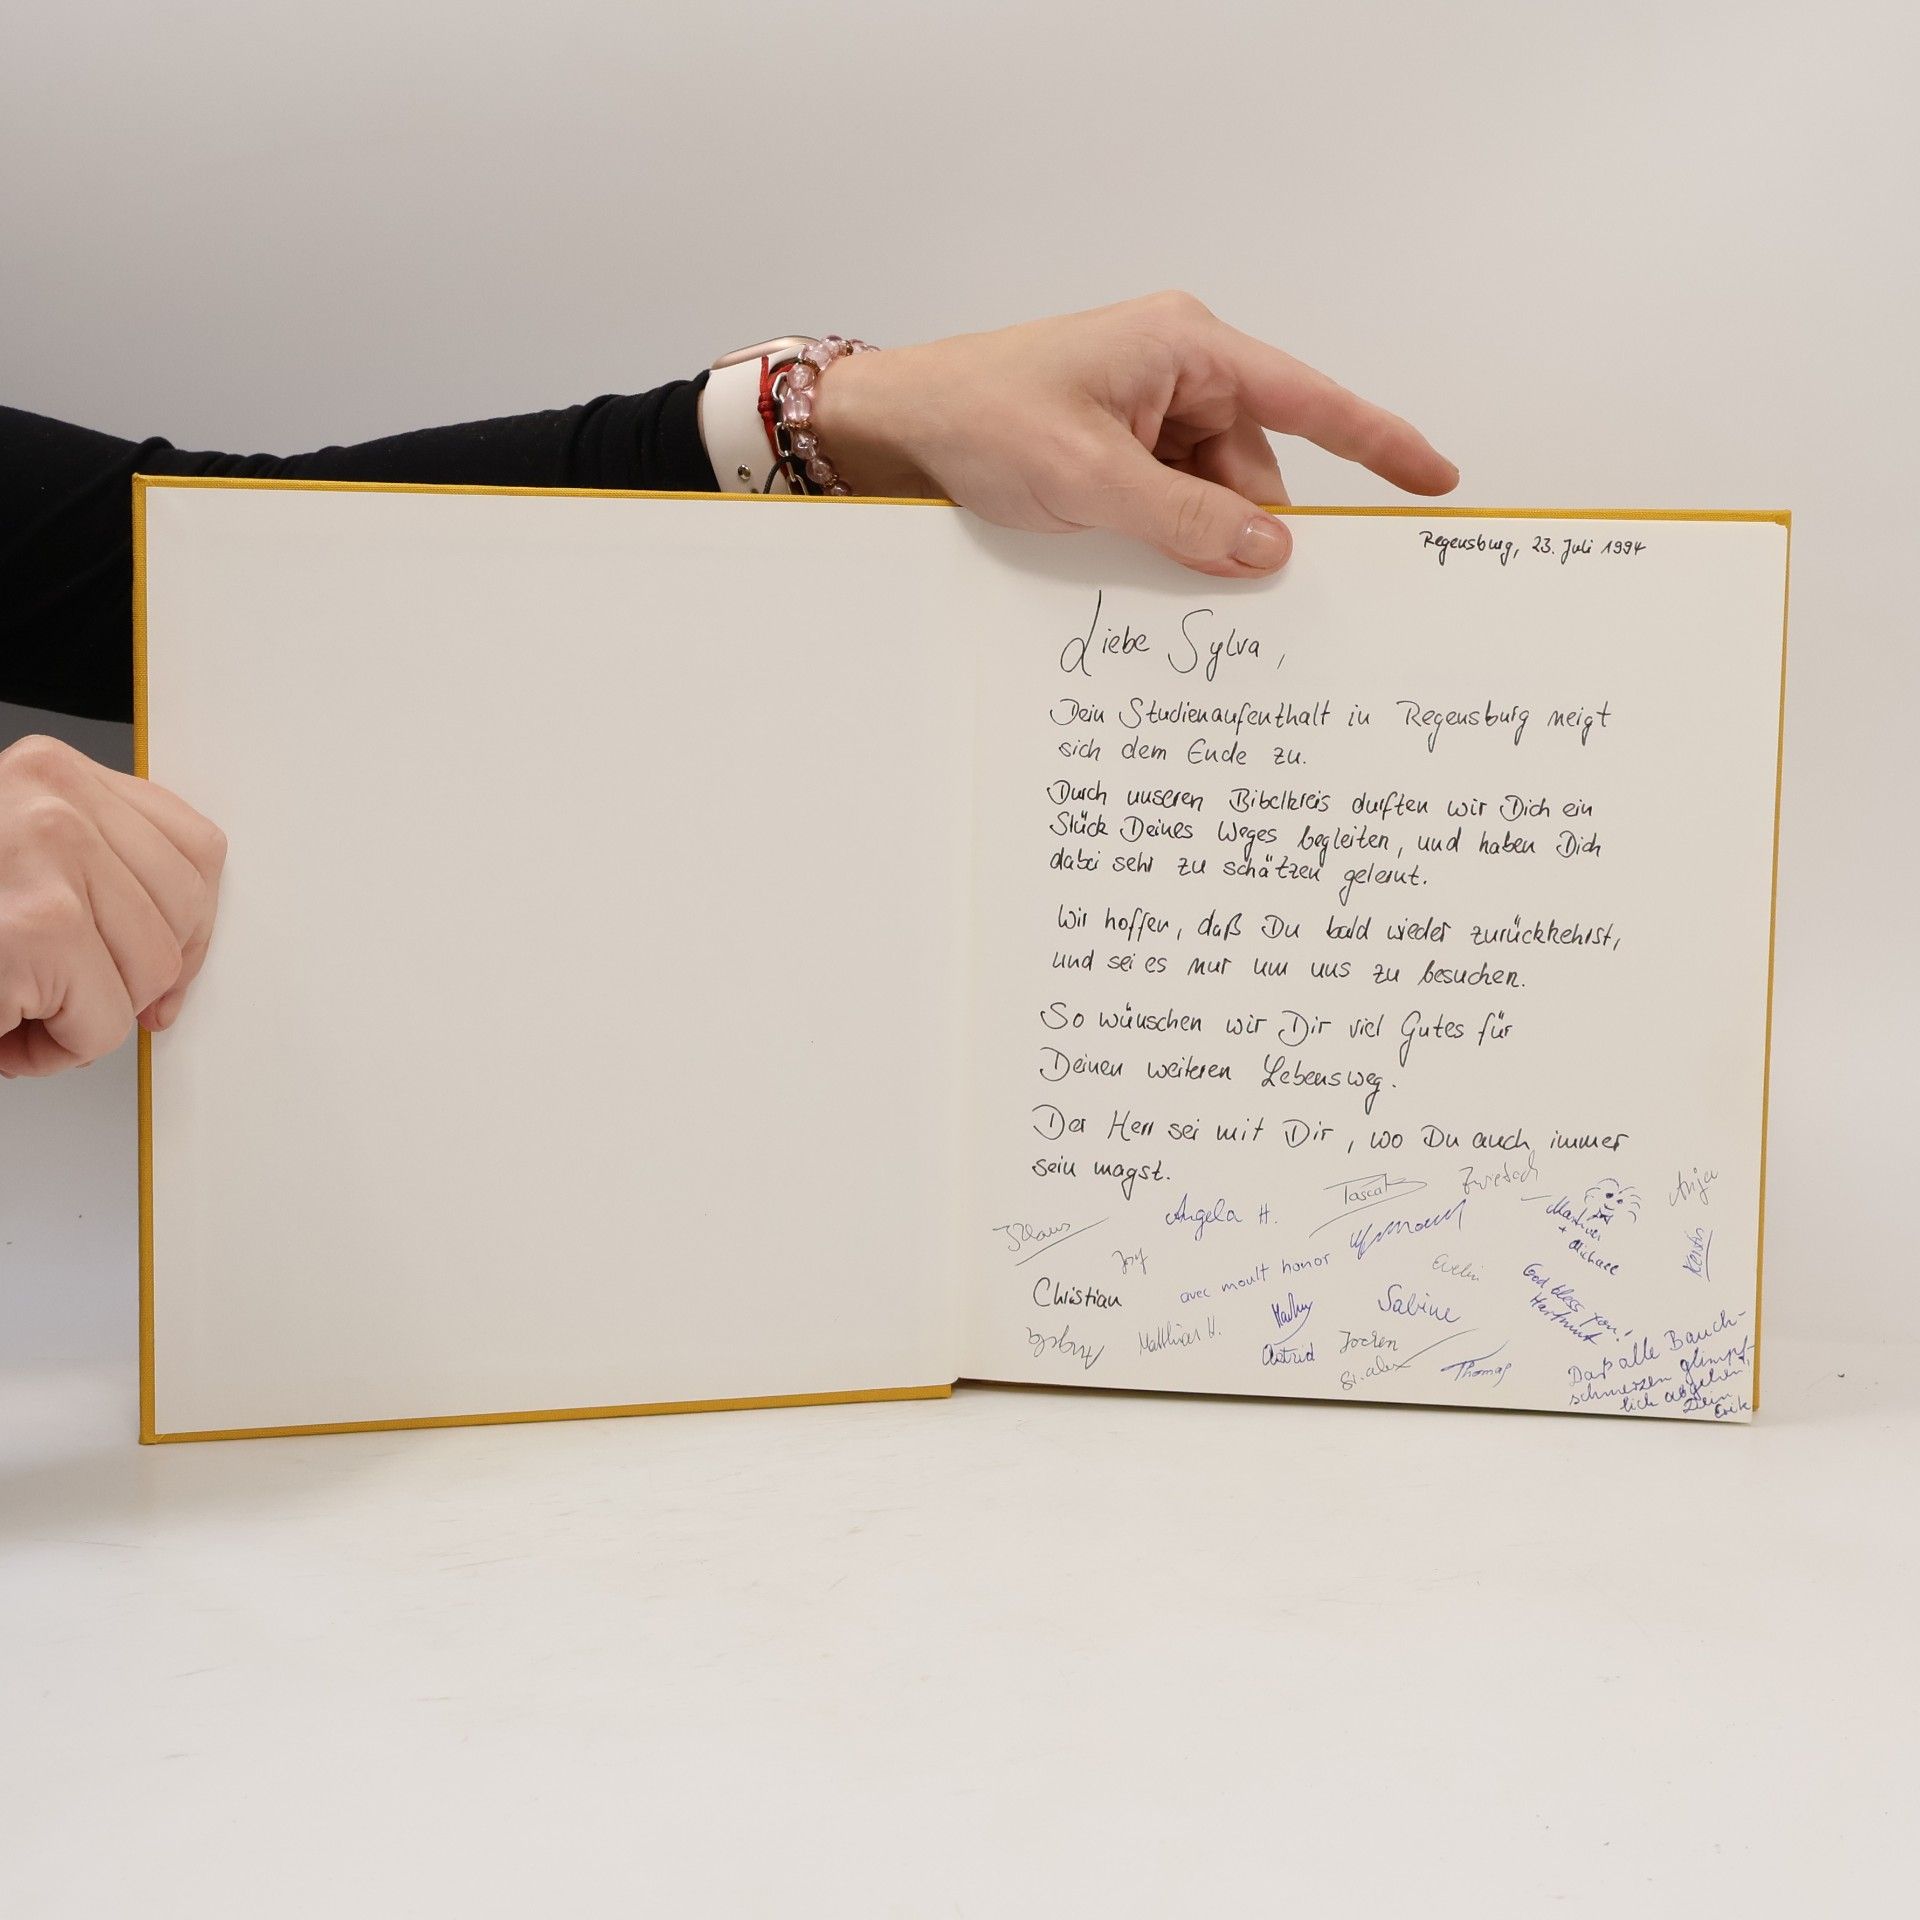 Regensburg, 23. Juli 1994
Liebe Sylva,
Dein Studienaufenthalt in Regensburg neigt
sich dem Ende zu.
Durch unseren Bibelkreis durften wir Dich ein
Stück Deines Weges begleiten, und haben Dich
dabei sehr zu schätzen gelernt.
Wir hoffen, daß Du bald wieder zurückkehrst,
und sei es nur um uns zu besuchen.
So wünschen wir Dir viel Gutes für
Deinen weiteren Lebensweg.
Der Herr sei mit Dir, wo Du auch immer
sein magst.
Pascal
Anja
Angela H.
+ Michael
Kerstin
avec moult honor
Evelin
God bless you!
Hartmut
Christian
Sabine
Matthias H.
Astrid
Jochen
Thomas
Daß alle Bauch-
schmerzen glimpf-
lich abgehen,
Dein
Erik